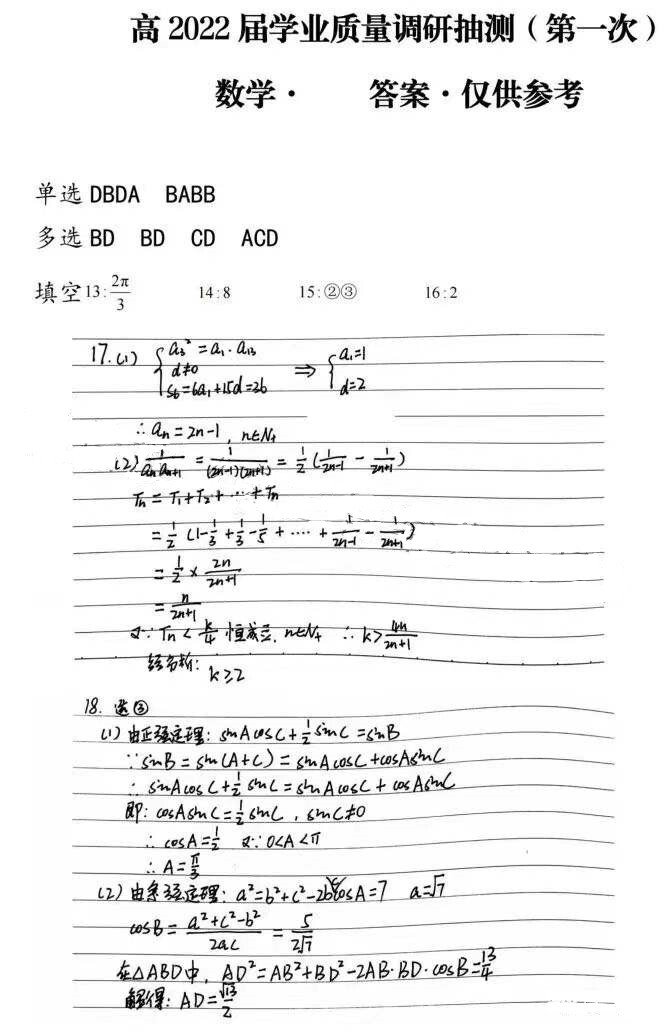 高 2022 届学业质量调研抽测（第一次）
数学· 答案·仅供参考
单选 DBDA BABB
多选 BD BD CD ACD
填空 13: 2π/3 14:8 15:②③ 16:2
17.(1) { a₃² = a₁·a₁₃
d≠0 ⇒ { a₁=1
S₆=6a₁+15d=36 d=2
∴ aₙ=2n-1, n∈N₊
(2) 1/(aₙaₙ₊₁) = 1/((2n-1)(2n+1)) = 1/2 (1/(2n-1) - 1/(2n+1))
Tₙ = T₁+T₂+…+Tₙ
= 1/2 (1-1/3+1/3-1/5+……+1/(2n-1)-1/(2n+1))
= 1/2 × 2n/(2n+1)
= n/(2n+1)
又∵ Tₙ < k/4 恒成立, n∈N₊ ∴ k> 4n/(2n+1)
经分析:
k≥2
18. 选③
(1) 由正弦定理: sinAcosC+1/2 sinC = sinB
∵ sinB = sin(A+C) = sinAcosC+cosAsinC
∴ sinAcosC+1/2 sinC = sinAcosC + cosAsinC
即: cosAsinC=1/2 sinC, sinC≠0
∴ cosA=1/2 又∵ 0<A<π
∴ A=π/3
(2) 由余弦定理: a²=b²+c²-2bccosA=7 a=√7
cosB = (a²+c²-b²)/(2ac) = 5/(2√7)
在△ABD中, AD²=AB²+BD²-2AB·BD·cosB=13/4
解得: AD=√13/2